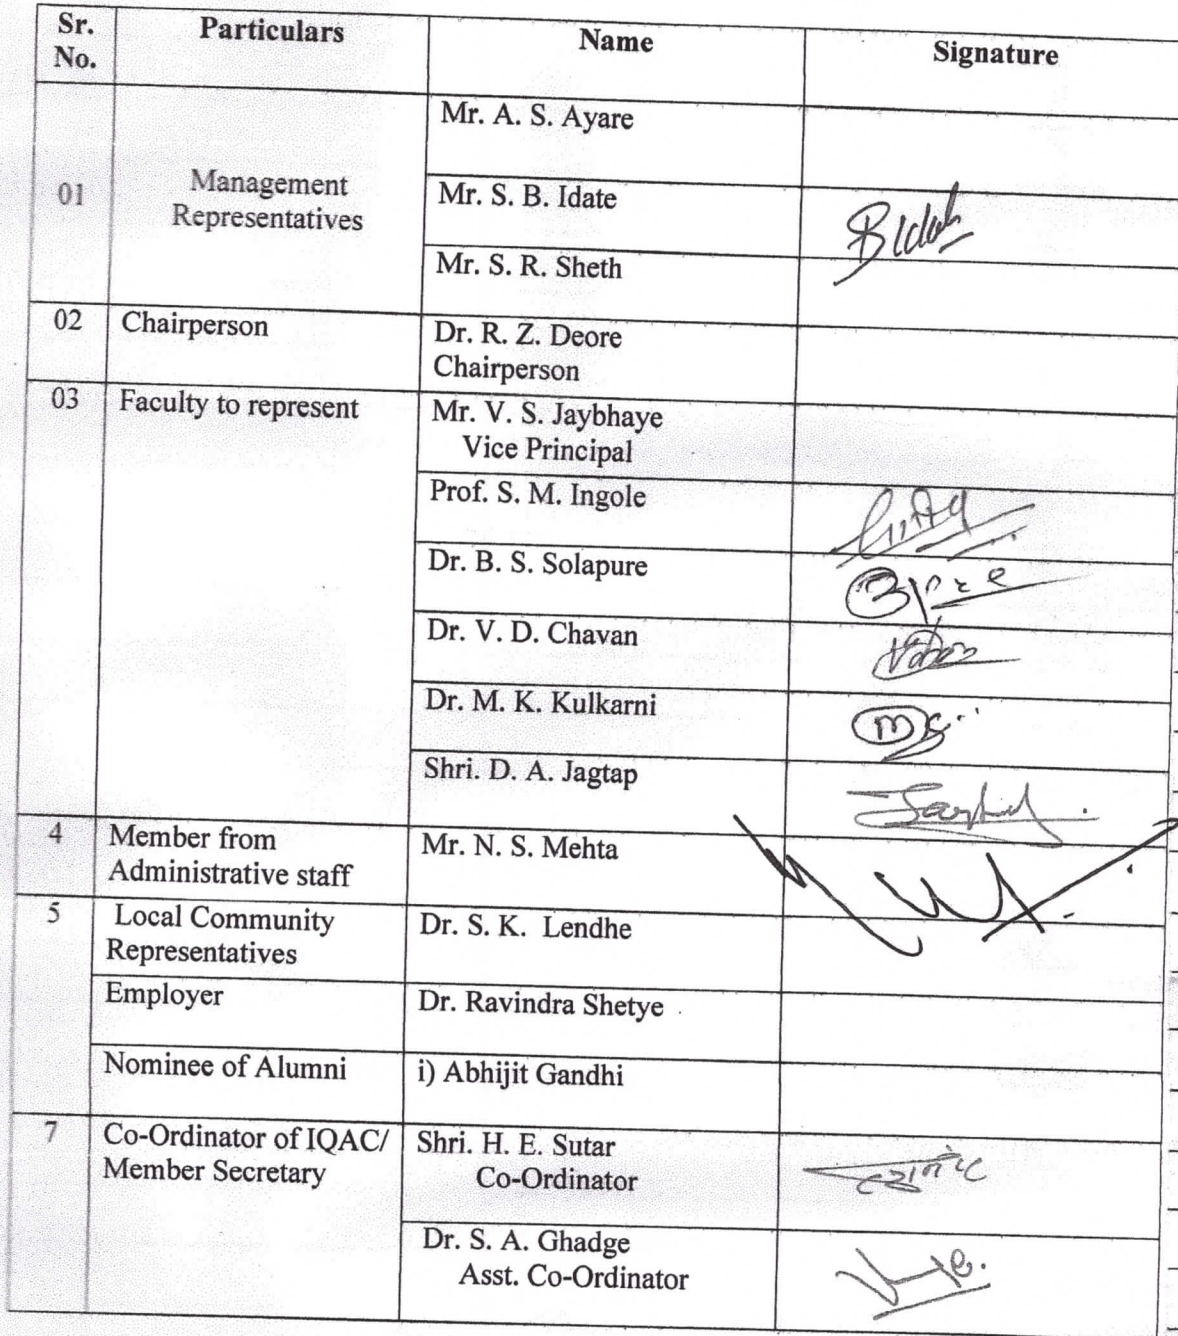 Sr. No. Particulars Name Signature
01 Management Representatives Mr. A. S. Ayare
Mr. S. B. Idate
Mr. S. R. Sheth
02 Chairperson Dr. R. Z. Deore
Chairperson
03 Faculty to represent Mr. V. S. Jaybhaye
Vice Principal
Prof. S. M. Ingole
Dr. B. S. Solapure
Dr. V. D. Chavan
Dr. M. K. Kulkarni
Shri. D. A. Jagtap
4 Member from Administrative staff Mr. N. S. Mehta
5 Local Community Representatives Dr. S. K. Lendhe
Employer Dr. Ravindra Shetye
Nominee of Alumni i) Abhijit Gandhi
7 Co-Ordinator of IQAC/ Member Secretary Shri. H. E. Sutar
Co-Ordinator
Dr. S. A. Ghadge
Asst. Co-Ordinator